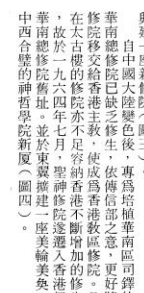 興建一座新修院（圖三）。
自中國大陸變色後，專爲培植華南區司鐸
華南總修院已缺乏修生，依傳信部之意，更好
修院移交給香港主教，使成爲香港教區修院。
在太古樓的修院亦不足容納香港不斷增加的修
，故於一九六四年七月，聖神修院遂遷入香港
華南總修院舊址。並於東翼擴建一座美輪美奐
中西合璧的神哲學院新厦（圖四）。